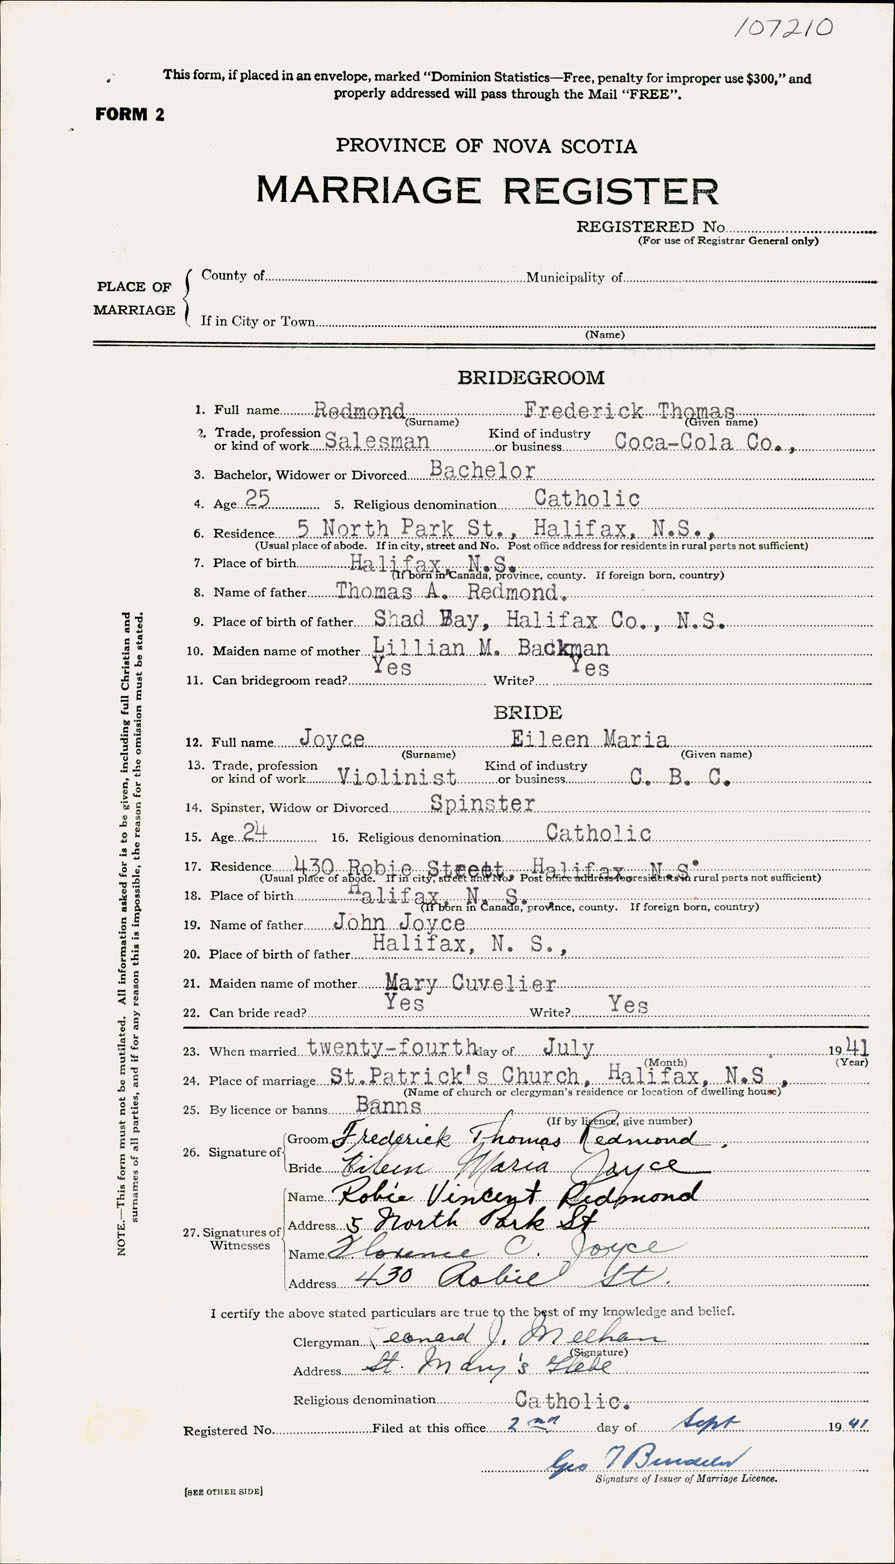 107210
This form, if placed in an envelope, marked "Dominion Statistics—Free, penalty for improper use $300," and
properly addressed will pass through the Mail "FREE".
FORM 2
PROVINCE OF NOVA SCOTIA
MARRIAGE REGISTER
REGISTERED No.
(For use of Registrar General only)
PLACE OF MARRIAGE
County of Municipality of
If in City or Town
(Name)
BRIDEGROOM
1. Full name Redmond Frederick Thomas
(Surname) (Given name)
2. Trade, profession or kind of work Salesman Kind of industry or business Coca-Cola Co.,
3. Bachelor, Widower or Divorced Bachelor
4. Age 25 5. Religious denomination Catholic
6. Residence 5 North Park St., Halifax, N.S.,
(Usual place of abode. If in city, street and No. Post office address for residents in rural parts not sufficient)
7. Place of birth Halifax, N.S.
(If born in Canada, province, county. If foreign born, country)
8. Name of father Thomas A. Redmond.
9. Place of birth of father Shad Bay, Halifax Co., N.S.
10. Maiden name of mother Lillian M. Backman
11. Can bridegroom read? Yes Write? Yes
BRIDE
12. Full name Joyce Eileen Maria
(Surname) (Given name)
13. Trade, profession or kind of work Violinist Kind of industry or business C. B. C.
14. Spinster, Widow or Divorced Spinster
15. Age 24 16. Religious denomination Catholic
17. Residence 430 Robie Street, Halifax, N.S.
(Usual place of abode. If in city, street and No. Post office address for residents in rural parts not sufficient)
18. Place of birth Halifax, N. S.
(If born in Canada, province, county. If foreign born, country)
19. Name of father John Joyce
20. Place of birth of father Halifax, N. S.,
21. Maiden name of mother Mary Cuvelier
22. Can bride read? Yes Write? Yes
23. When married twenty-fourth day of July 1941
(Month) (Year)
24. Place of marriage St.Patrick's Church, Halifax, N.S,
(Name of church or clergyman's residence or location of dwelling house)
25. By licence or banns Banns
(If by licence, give number)
26. Signature of
Groom Frederick Thomas Redmond.
Bride Eileen Maria Joyce
27. Signatures of Witnesses
Name Robie Vincent Redmond
Address 5 North Park St
Name Florence C. Joyce
Address 430 Robie St.
I certify the above stated particulars are true to the best of my knowledge and belief.
Clergyman Leonard J. Meehan
(Signature)
Address St. Mary's Glebe
Religious denomination Catholic.
Registered No. Filed at this office 2nd day of Sept 1941
Geo T
Signature of Issuer of Marriage Licence.
[SEE OTHER SIDE]
NOTE.—This form must not be mutilated. All information asked for is to be given, including full Christian and
surnames of all parties, and if for any reason this is impossible, the reason for the omission must be stated.